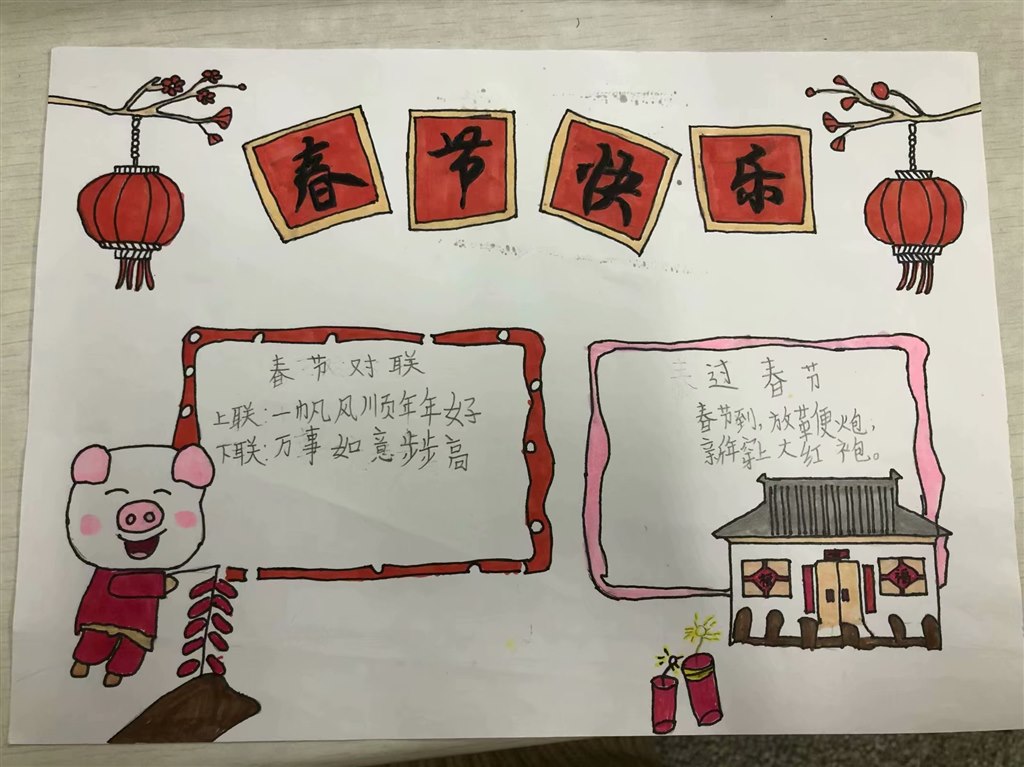 春节快乐
春节对联
上联:一帆风顺年年好
下联:万事如意步步高
过春节
春节到,放革便炮,
新年穿上大红袍。
福
福